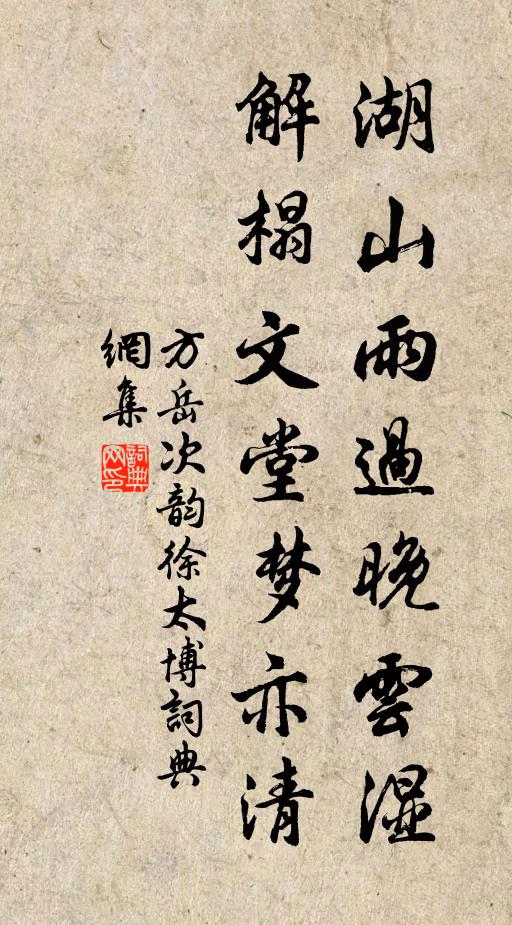 湖山雨過晚雲湿
解榻文堂梦亦清
方岳次韵徐太博詞典
網集
詞典
网印